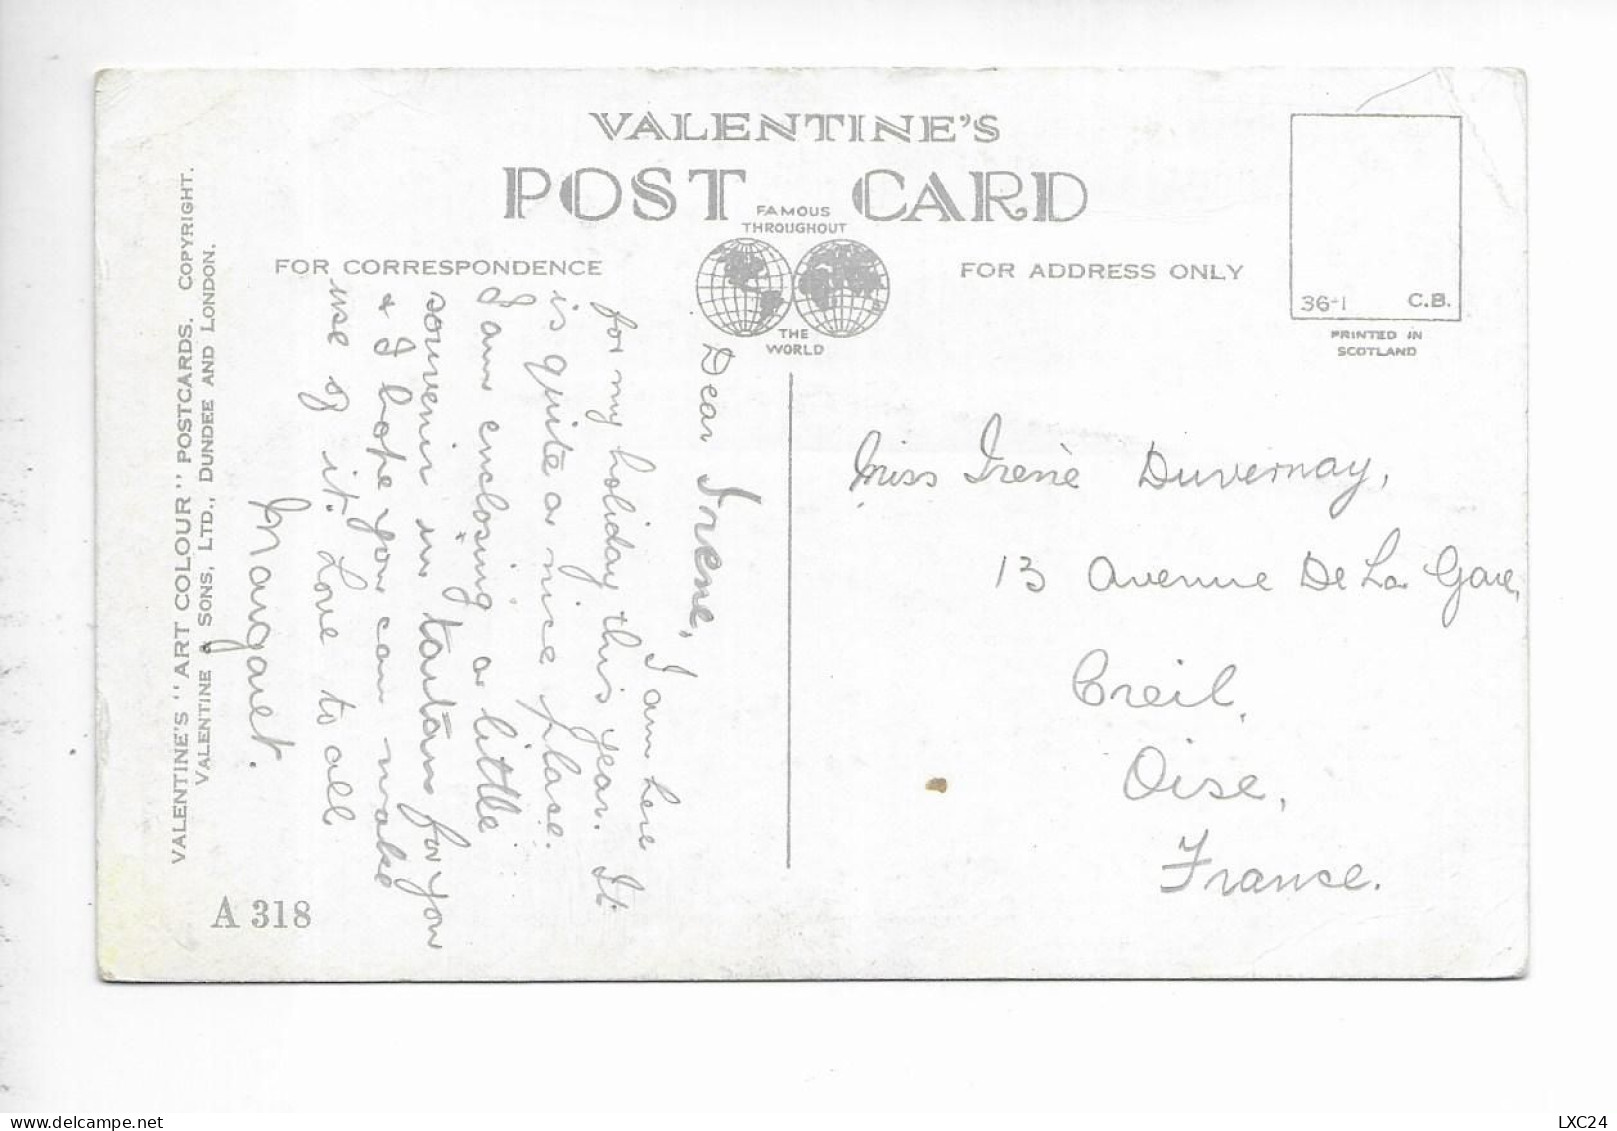 VALENTINE'S
POST CARD
FAMOUS
THROUGHOUT
THE
WORLD
FOR CORRESPONDENCE
FOR ADDRESS ONLY
36-1 C.B.
PRINTED IN
SCOTLAND
VALENTINE'S "ART COLOUR" POSTCARDS. COPYRIGHT.
VALENTINE & SONS, LTD., DUNDEE AND LONDON.
A 318
Dear Irene,
I am here
for my holiday this year. It
is quite a nice place.
I am enclosing a little
souvenir in tartan for you
& I hope you can make
use of it. Love to all
Margaret.
Miss Irene Duvernay,
13 Avenue De La Gare,
Creil,
Oise,
France.
delcampe.net
LXC24